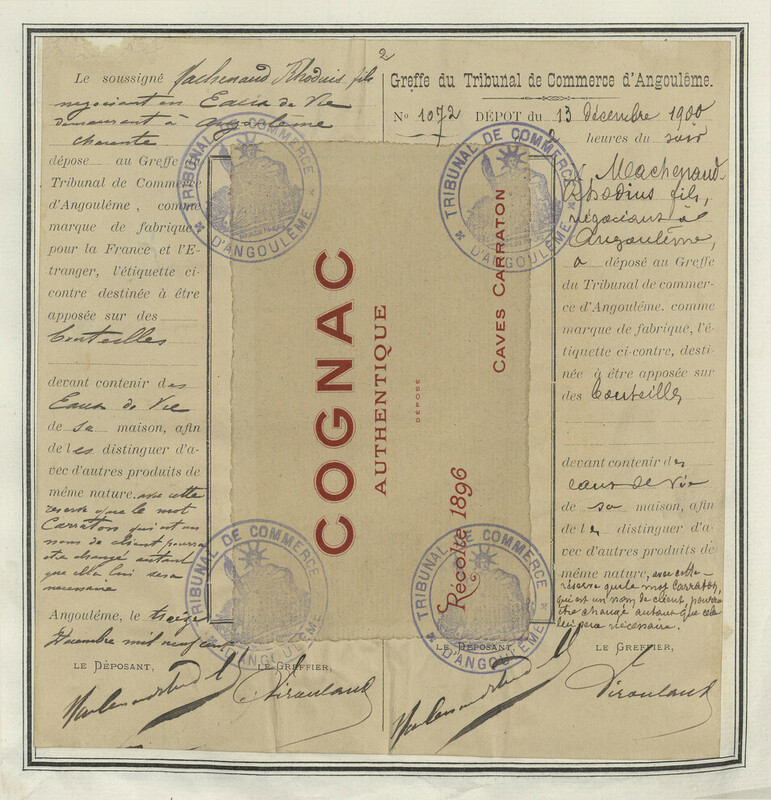 2
Le soussigné Machenaud Rhodius fils
négociant en Eaux de Vie
demeurant à Angoulême
Charente
dépose au Greffe
Tribunal de Commerce
d'Angoulême, comme
marque de fabrique
pour la France et l'E-
tranger, l'étiquette ci-
contre destinée à être
apposée sur des
bouteilles
devant contenir des
Eaux de Vie
de sa maison, afin
de les distinguer d'a-
vec d'autres produits de
même nature. avec cette
reserve que le mot
Carraton qui est un
nom de client pourra
etre changé autant
que cela lui sera
necessaire
Angoulême, le treize
Decembre mil neuf cent
LE DÉPOSANT,
LE GREFFIER,
Greffe du Tribunal de Commerce d'Angoulême.
No 1072 DÉPOT du 13 Décembre 1900
2 heures du soir
Machenaud-
Rhodius fils,
négociant à
Angoulême,
a déposé au Greffe
du Tribunal de commer-
ce d'Angoulême, comme
marque de fabrique, l'é-
tiquette ci-contre, desti-
née à être apposée sur
des bouteilles
devant contenir des
eaux de vie
de sa maison, afin
de les distinguer d'a-
vec d'autres produits de
même nature, avec cette
réserve que le mot Carraton,
qui est un nom de client, pourra
être changé autant que cela
lui sera nécessaire.
LE DÉPOSANT,
LE GREFFIER,
COGNAC
AUTHENTIQUE
DÉPOSÉ
CAVES CARRATON
Récolte 1896
TRIBUNAL DE COMMERCE
D'ANGOULÊME
TRIBUNAL DE COMMERCE
D'ANGOULÊME
TRIBUNAL DE COMMERCE
D'ANGOULÊME
TRIBUNAL DE COMMERCE
D'ANGOULÊME